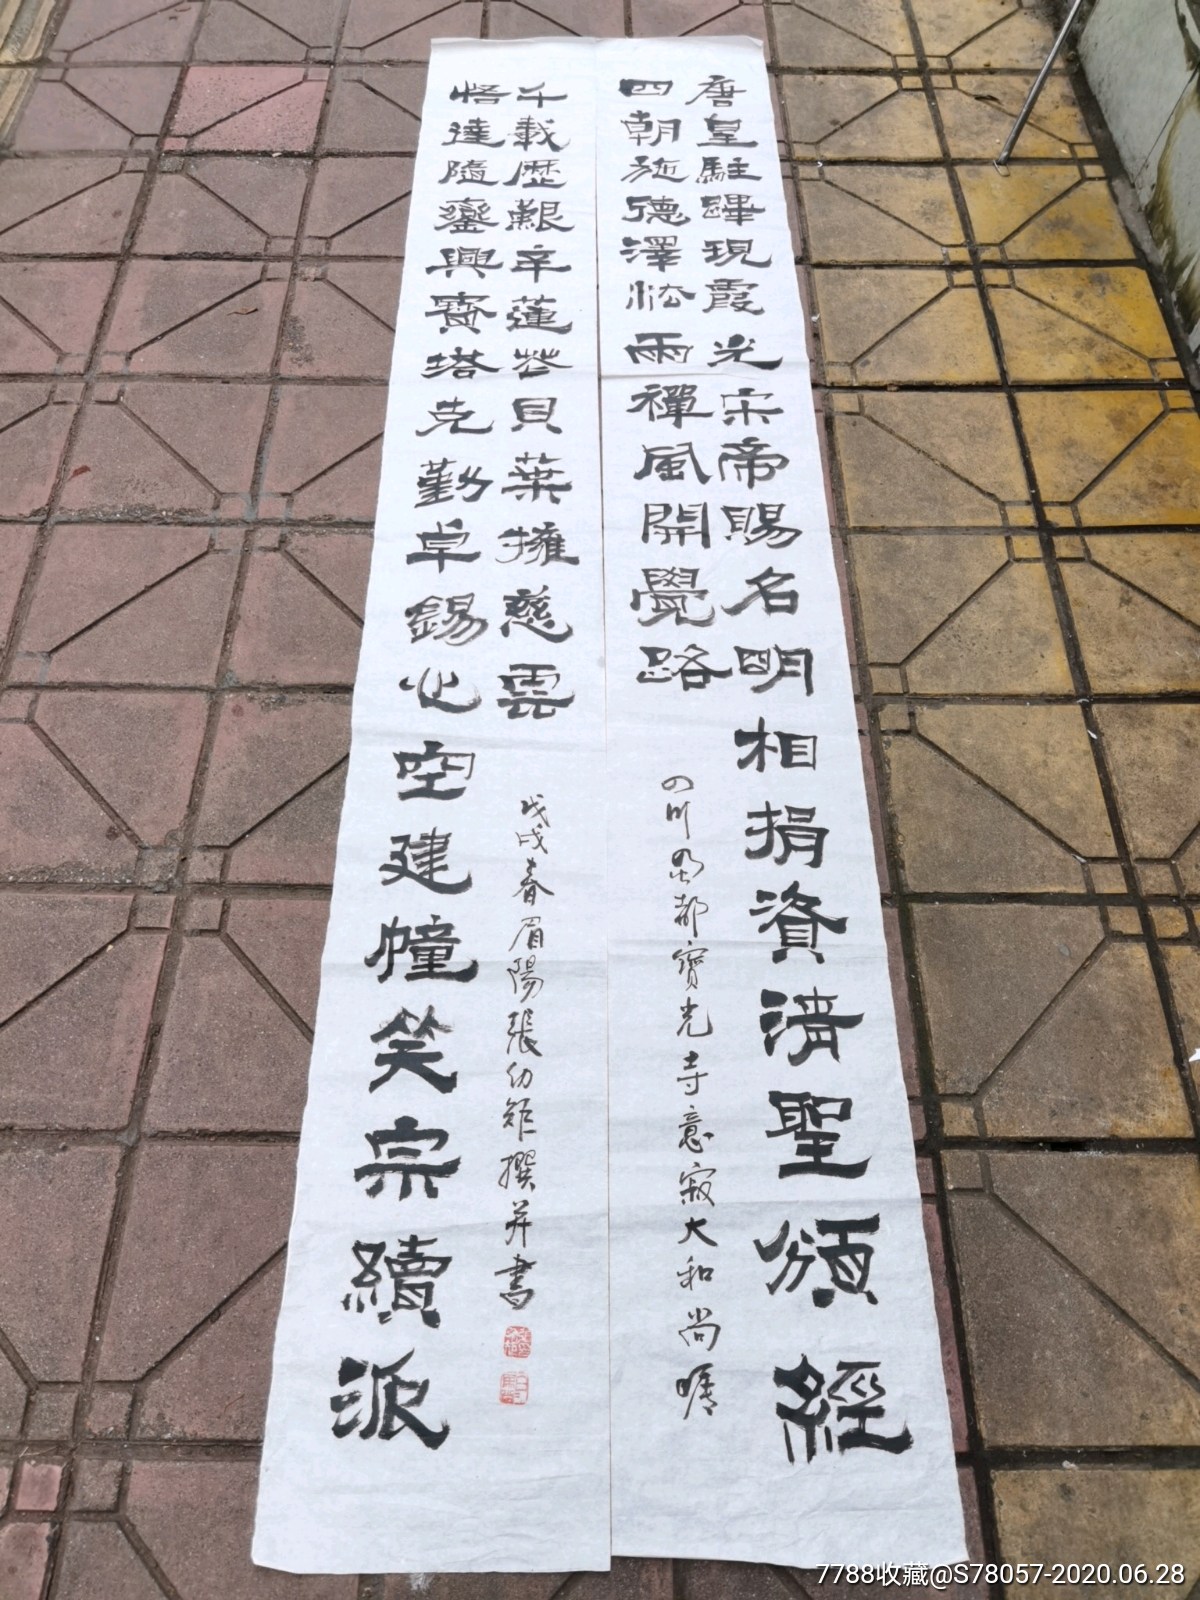 唐皇駐蹕現霞光宋帝賜名明相捐資清聖頒經
四朝施德澤法雨禪風開覺路
四川成都寶光寺意寂大和尚囑
悟達隨鑾興寶塔克勤卓錫心空建幢笑宗續派
千載歷艱辛蓮花貝葉擁慈雲
戊戌春眉陽張幼矩撰并書
7788收藏@S78057-2020.06.28